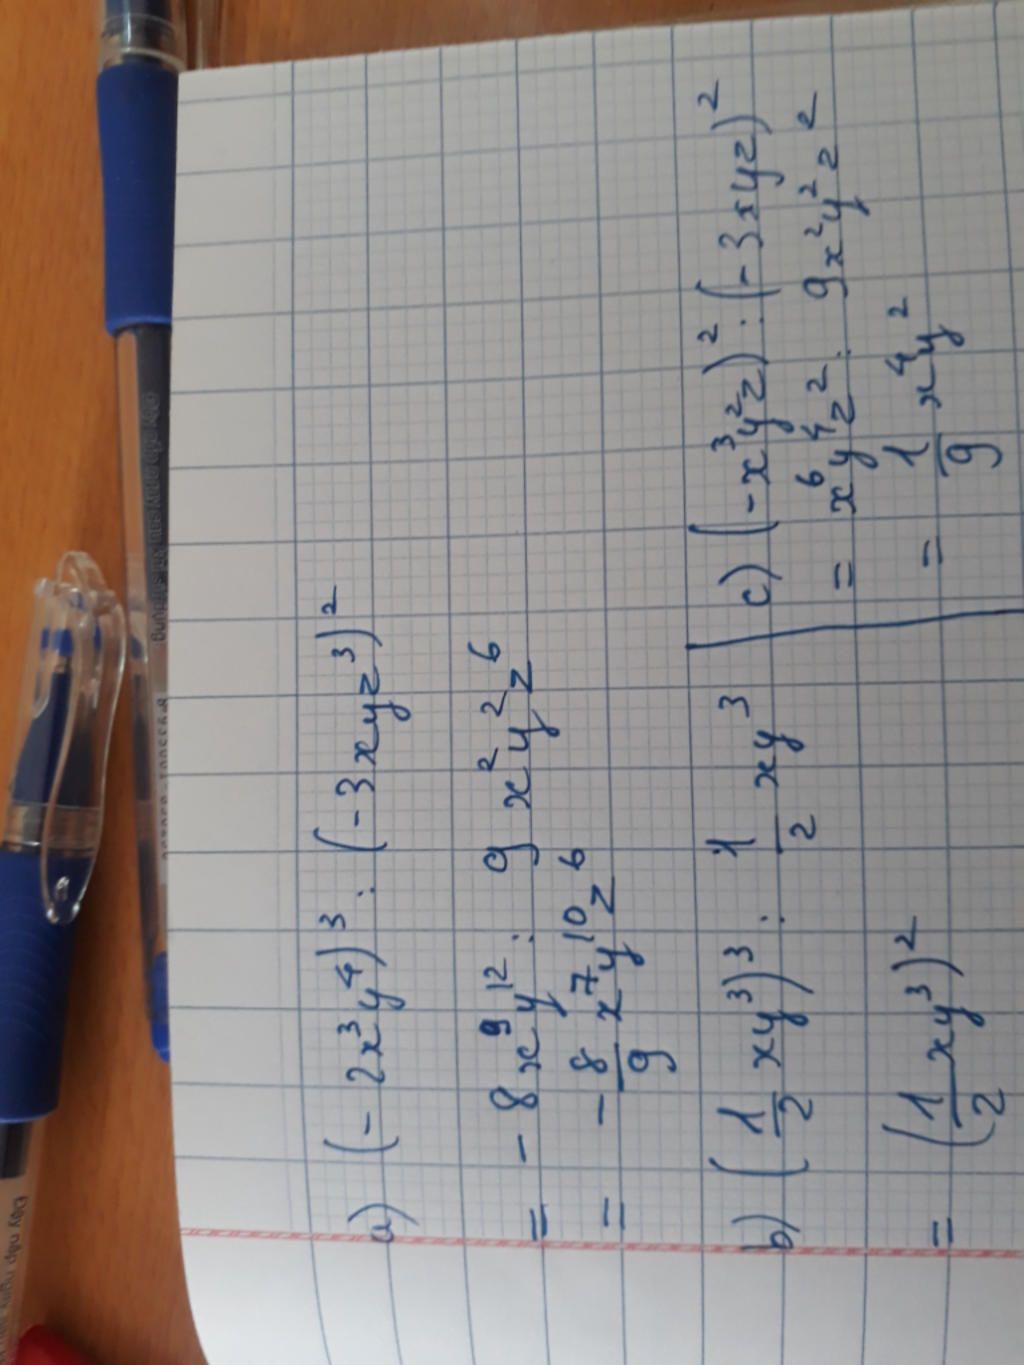 a) (-2x³y⁴)³ : (-3xyz³)²
= -8x⁹y¹² : 9x²y²z⁶
= -8/9 x⁷y¹⁰z⁶
b) (1/2 xy³)³ : 1/2 xy³
= (1/2 xy³)²
c) (-x³y²z)² : (-3xyz)²
= x⁶y⁴z² : 9x²y²z²
= 1/9 x⁴y²